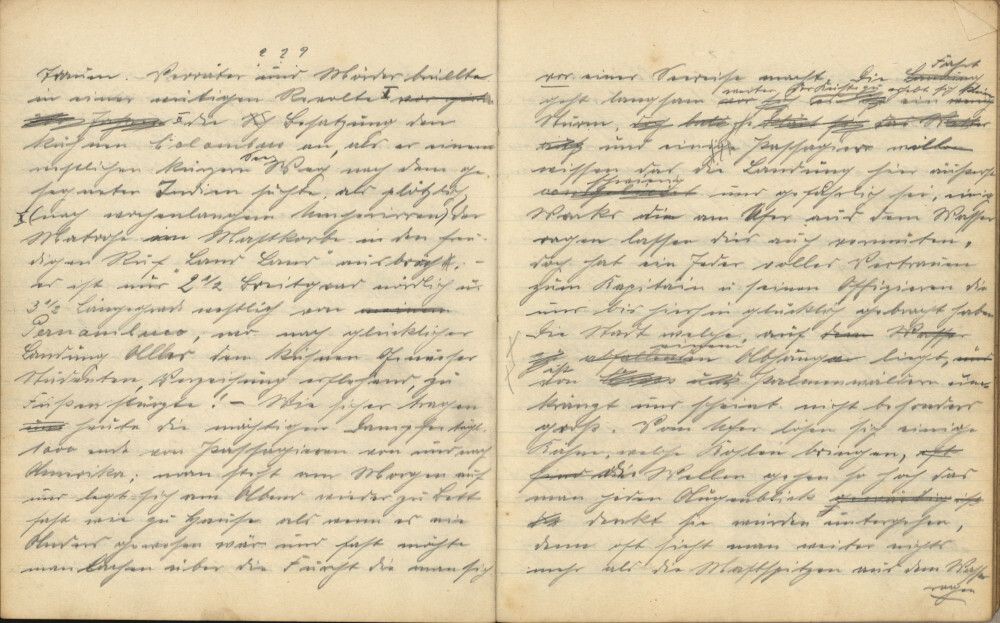 229
Traum. Verräter und Mörder brüllte
in einer wütigen Revolte
die Besatzung den
kühnen Colombus an, als er einen
westlichen kürzern Seeweg nach dem ge-
segneten Indien suchte, als plötzlich
(nach wochenlangem Umherirren) der
Matrose im Mastkorbe in den freu-
digen Ruf "Land Land" ausbrach. -
es ist nur 2 1/2 Breitgrad nördlich u.
3 1/2 Längegrade westlich von
Pernambuco, wo nach glücklicher
Landung Alles dem kühnen Genueser
Studenten, Verzeihung erflehend, zu
Füßen stürzte! - Wie sicher tragen
heute die mächtigen Dampfer
1000 ende von Passagieren von und nach
Amerika; man steht am Morgen auf
und legt sich am Abend wieder zu Bett
fast wie zu Hause als wenn es nie
Anders gewesen wär und fast möchte
man lachen über die Furcht die man sich
vor einer Seereise macht. Die Fahrt
geht langsam weiter, der Küste zu erhebt sich ein kleiner
Sturm,
und einige Passagiere wollen
wissen das die Landung hier äuserst
schwierig und gefährlich sei, einige
Wracks die am Ufer aus dem Wasser
ragen lassen dies auch vermuten,
doch hat ein Jeder volles Vertrauen
zum Kapitain u seinen Offizieren die
uns bis hierhin glücklich gebracht haben
Die Stadt welche, auf
einem Abhange liegt,
ist von Palmenwäldern um-
kränzt und scheint nicht besonders
groß. Vom Ufer lösen sich einige
Kähne, welche Kohlen bringen,
die Wellen gehen so hoch das
man jeden Augenblick
denkt sie würden untergehen,
denn oft sieht man weiter nichts
mehr als die Mastspitzen aus dem Wasser
ragen